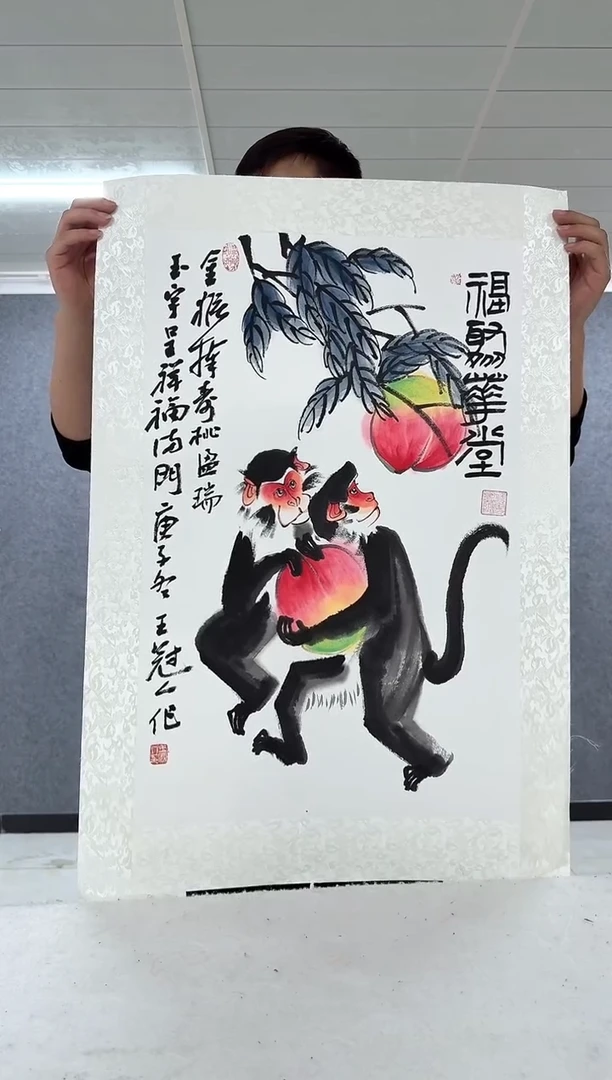 福聚華堂
金猴捧寿桃瑞
玉宇呈祥福满門庚子冬王冠作